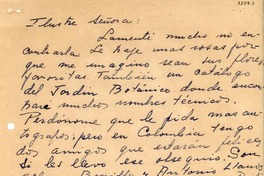 Ilustre Señora:
Lamenté mucho no en-
contrarla. Le dejé unas rosas por
que me imagino sean sus flores
favoritas. También un catálogo
del Jardín Botánico donde encon
hará muchos nombres técnicos.
Perdóneme que le pida mas au-
tógrafos; pero en Colombia tengo
dos amigos que estarán felices
si les llevo ese obsequio. Son
y Antonio